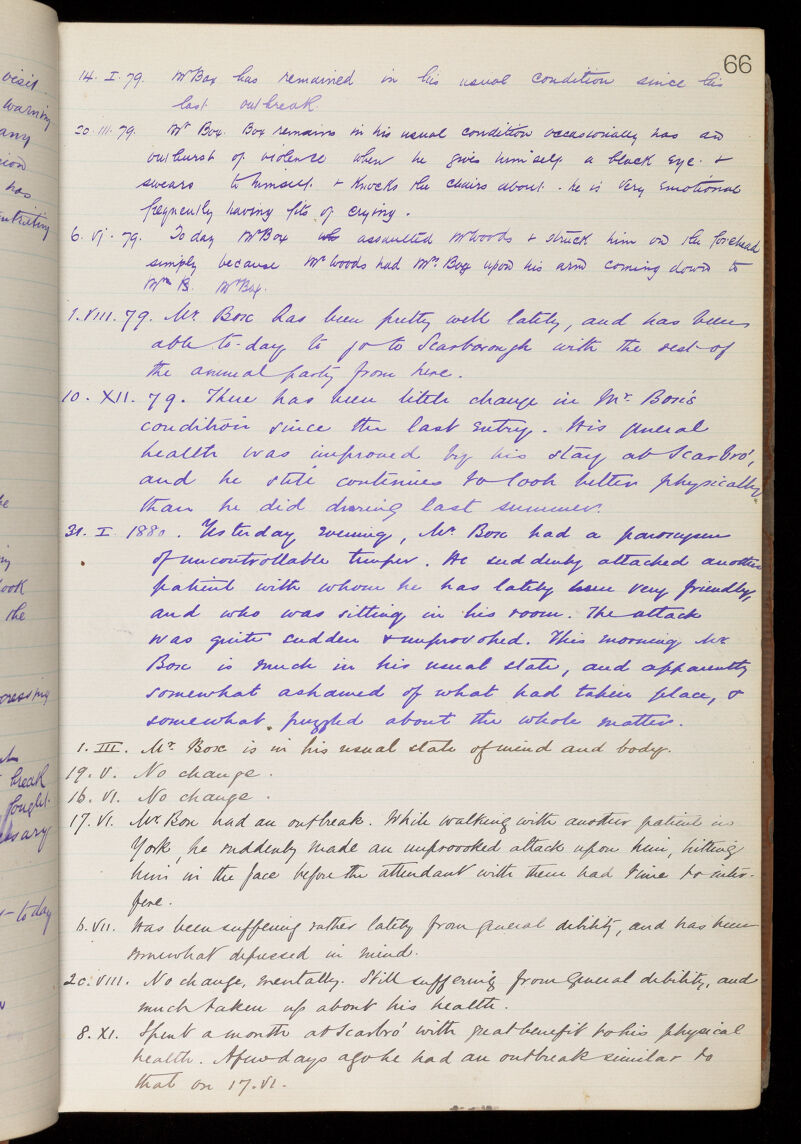 visit
warning
any
has
look
the
break
fought
to day
66
14. I. 79. Mr Box has remained in his usual condition since his
last outbreak
20. III. 79. Mr Box. Box remains in his usual condition occasionally has an
outburst of violence when he gives himself a black eye. &
swears to himself. & knocks the chairs about. he is very emotional
frequently having fits of crying.
6. VI. 79. To day Mr Box assaulted Mr Woods & struck him on the forehead
simply because Mr Woods had Mrs. Box upon his arm coming down to
Mrs B. Mr Box.
1. VIII. 79. Mr. Box has been pretty well lately, and has been
able to-day to go to Scarborough with the rest of
the annual party from here.
10. XII. 79. There has been little change in Mr. Box's
condition since the last entry. His general
health was improved by his stay at Scarbro',
and he still continues to look better physically
than he did during last summer.
31. I. 1880. Yesterday evening, Mr. Box had a paroxysm
of uncontrollable temper. He suddenly attacked another
patient with whom he has lately been very friendly,
and who was sitting in his room. The attack
was quite sudden & unprovoked. This morning Mr.
Box is much in his usual state, and apparently
somewhat ashamed of what had taken place, &
somewhat puzzled about the whole matter.
1. III. Mr. Box is in his usual state of mind and body.
19. V. No change.
16. VI. No change.
17. VI. Mr. Box had an outbreak. While walking with another patient in
York, he suddenly made an unprovoked attack upon him, hitting
him in the face before the attendant with them had time to inter-
fere.
6. VII. Has been suffering rather lately from general debility, and has been
somewhat depressed in mind.
20. VIII. No change, mentally. Still suffering from general debility, and
much taken up about his health.
8. XI. Spent a month at Scarbro' with great benefit to his physical
health. A few days ago he had an outbreak similar to
that on 17. VI.